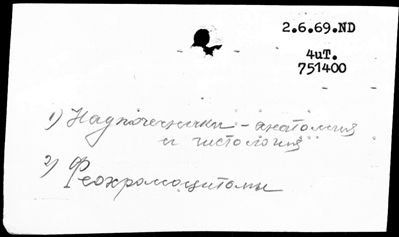 2.6.69.ND
4иТ.
751400
1) Надпочечники - анатомия
и гистология
2) Феохромоцитомы